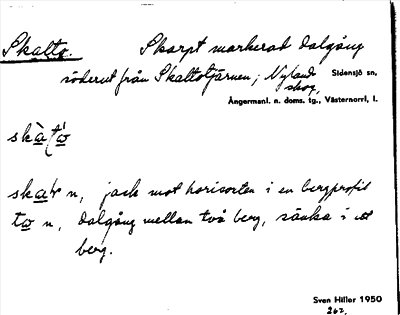 Skalto. Skarpt markerad dalgång
söderut från Skaltotjärnen; Nyland skog,
Sidensjö sn,
Ångermanl. n. doms. tg., Västernorrl. l.
skàtò
skar n, jack mot horisonten i en bergprofil
to n, dalgång mellan två berg, sänka i ett
berg.
Sven Hiller 1950
262.